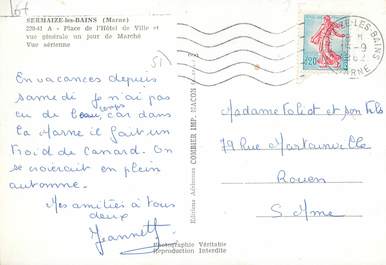 SERMAIZE-les-BAINS (Marne)
220-41 A - Place de l'Hôtel de Ville et
vue générale un jour de Marché
Vue aérienne
51
En vacances depuis
samedi je n'ai pas
eu de beau temps, car dans
la Marne il fait un
froid de canard. On
se croierait en plein
automne.
Mes amitiés à tous
deux
Jeannette
Photographie Véritable
Reproduction Interdite
Editions Aériennes COMBIER IMP. MACON
ZE-LES-BAINS
MARNE
0,20
Madame Foliot et son fils
79 Rue Martainville
Rouen
S. Mme